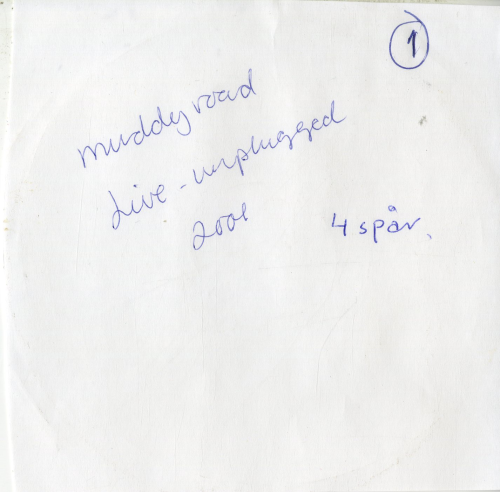 1
muddy road
Live - unplugged
2001
4 spår.